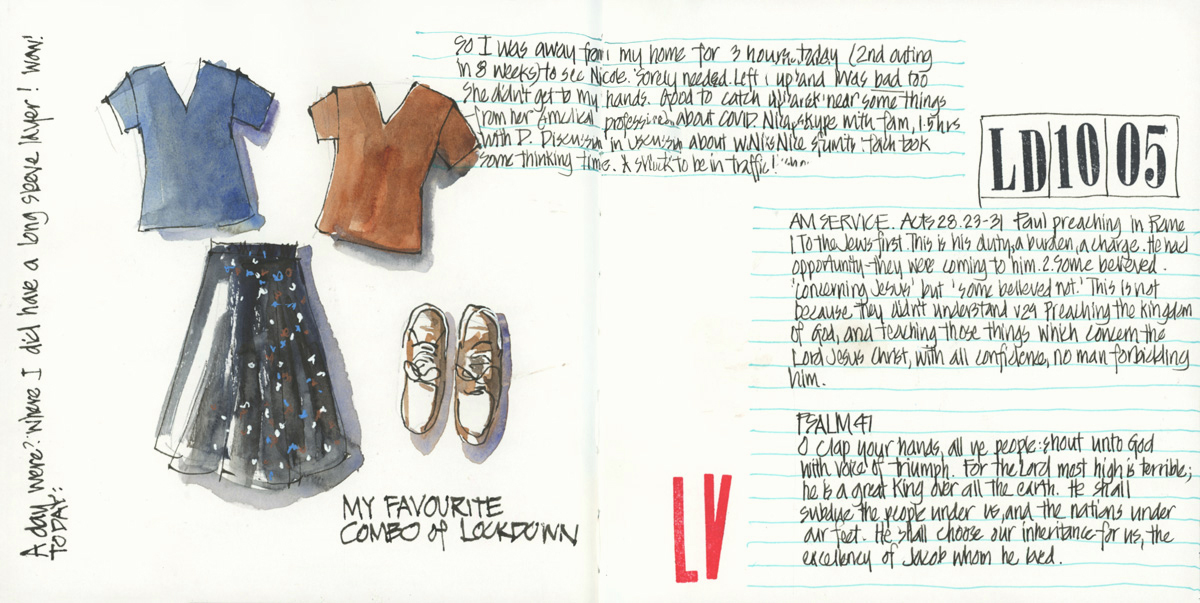 A day were? where I did have a long sleeve layer! wow!
TODAY:
So I was away from my home for 3 hours today (2nd outing
in 8 weeks) to see Nicole. Sorely needed. Left up and was bad too
She didn't get to my hands. Good to catch up near some things
from her medical about COVID. skype with fam, 1.5 hrs
with D. in about took
some thinking time. A to be in traffic!
LD 10 05
AM SERVICE. Acts 28.23-31 Paul preaching in Rome
1 To the Jews first This is his duty, a burden, a charge. He had
opportunity - they were coming to him. 2. Some believed.
'concerning Jesus' but 'some believed not.' This is not
because they didn't understand v29 Preaching the kingdom
of God, and teaching those things which concern the
Lord Jesus Christ, with all confidence, no man forbidding
him.
PSALM 47
O clap your hands, all ye people: shout unto God
with voice of triumph. For the Lord most high is terrible;
he is a great King over all the earth. He shall
subdue the people under us, and the nations under
our feet. He shall choose our inheritance for us, the
excellency of Jacob whom he loved.
MY FAVOURITE
COMBO of LOCKDOWN
LV